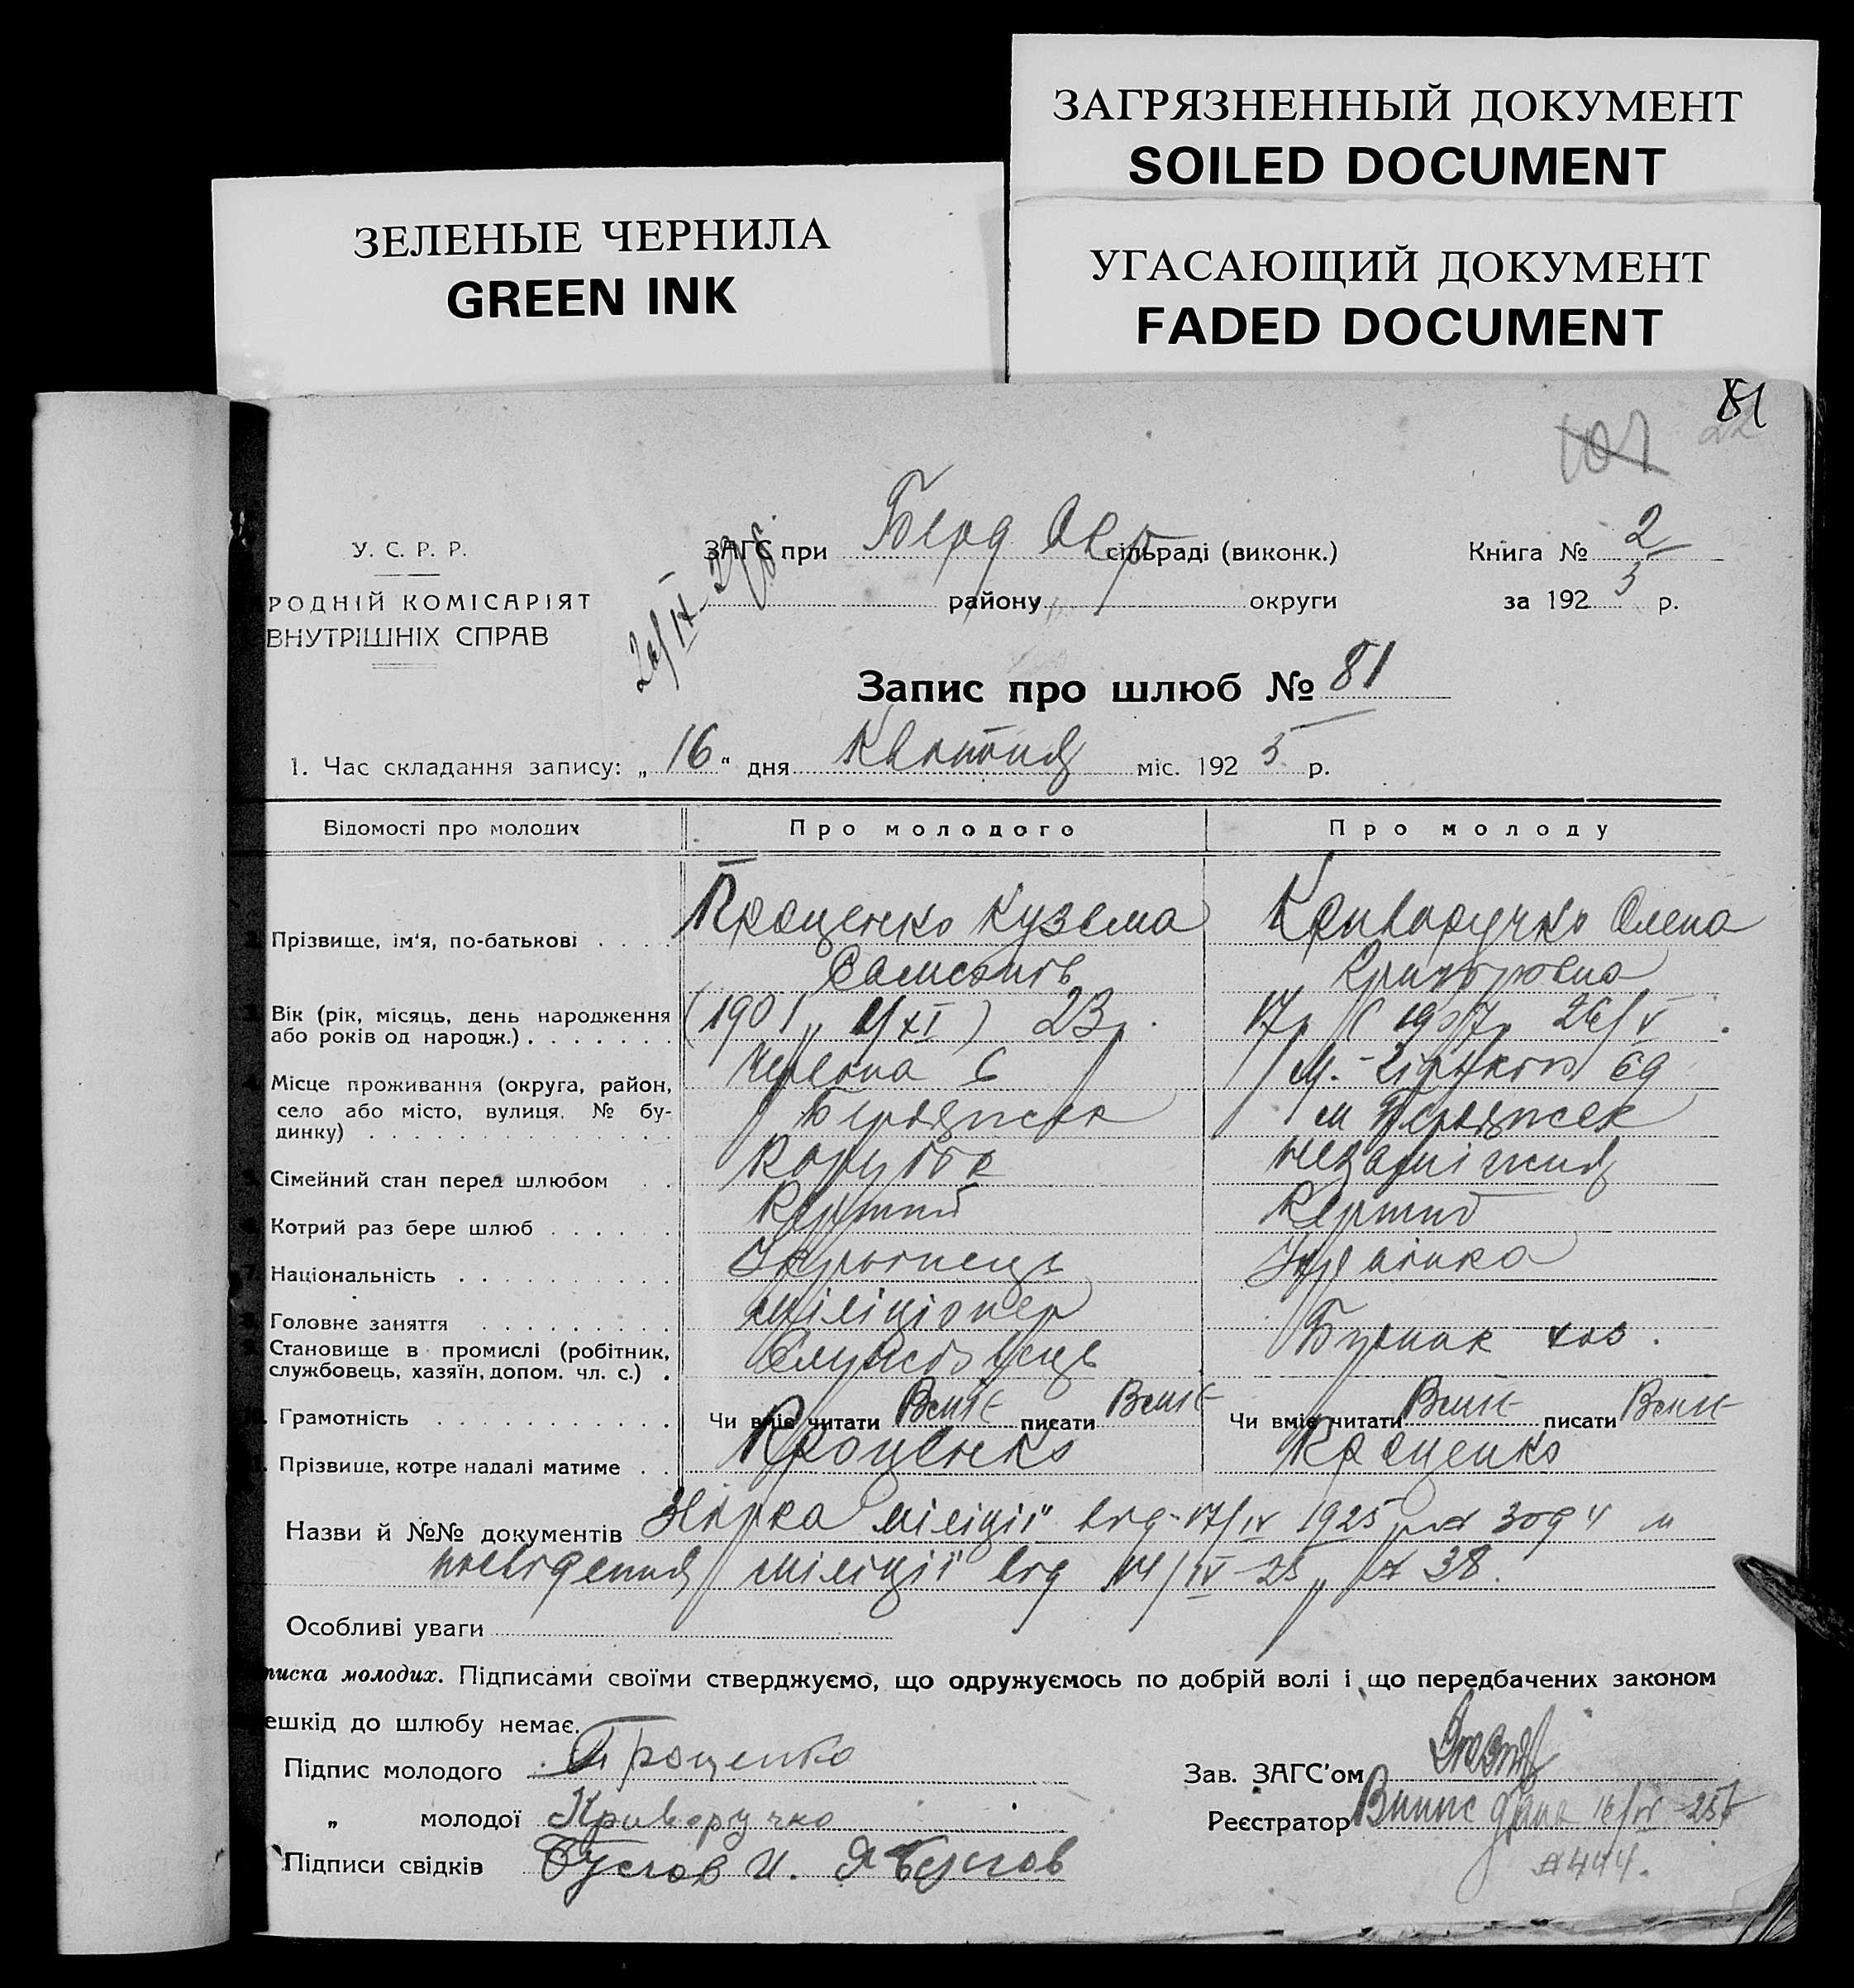 ЗАГРЯЗНЕННЫЙ ДОКУМЕНТ
SOILED DOCUMENT
ЗЕЛЕНЫЕ ЧЕРНИЛА
GREEN INK
УГАСАЮЩИЙ ДОКУМЕНТ
FADED DOCUMENT
81
107
У. С. Р. Р.
РОДНІЙ КОМІСАРІЯТ
ВНУТРІШНІХ СПРАВ
ЗАГС при Берд Окр сільраді (виконк.)
Книга № 2
району округи
за 1925 р.
Запис про шлюб № 81
1. Час складання запису: „16“ дня Квітня міс. 1925 р.
Відомості про молодих Про молодого Про молоду
Прізвище, ім'я, по-батькові Проценко Кузьма Криворучко Олена
Самсонів Григоровна
Вік (рік, місяць, день народження або років од народж.) (1901 XI) 23р. 17р (1907р 26/V
Місце проживання (округа, район, село або місто, вулиця, № будинку) Червона 6 69
Бердянськ м Бердянськ
Сімейний стан перед шлюбом Парубок Незаміжня
Котрий раз бере шлюб Перший Перший
7. Національність Українець Українка
Головне заняття міліціонер
Становище в промислі (робітник, службовець, хазяїн, допом. чл. с.) Службовець
Грамотність Чи вміє читати Вміє писати Вміє Чи вміє читати Вміє писати Вміє
Прізвище, котре надалі матиме Проценко Проценко
Назви й №№ документів міліції від 17/IV 1925 р
посвідчення міліції від 14/IV-25р № 38.
Особливі уваги
писка молодих. Підписами своїми стверджуємо, що одружуємось по добрій волі і що передбачених законом
ешкід до шлюбу немає.
Підпис молодого Проценко
Зав. ЗАГС'ом
„ молодої Криворучко
Реєстратор Випис дана 16/IV-25р
№ 444.
Підписи свідків Буслов И.